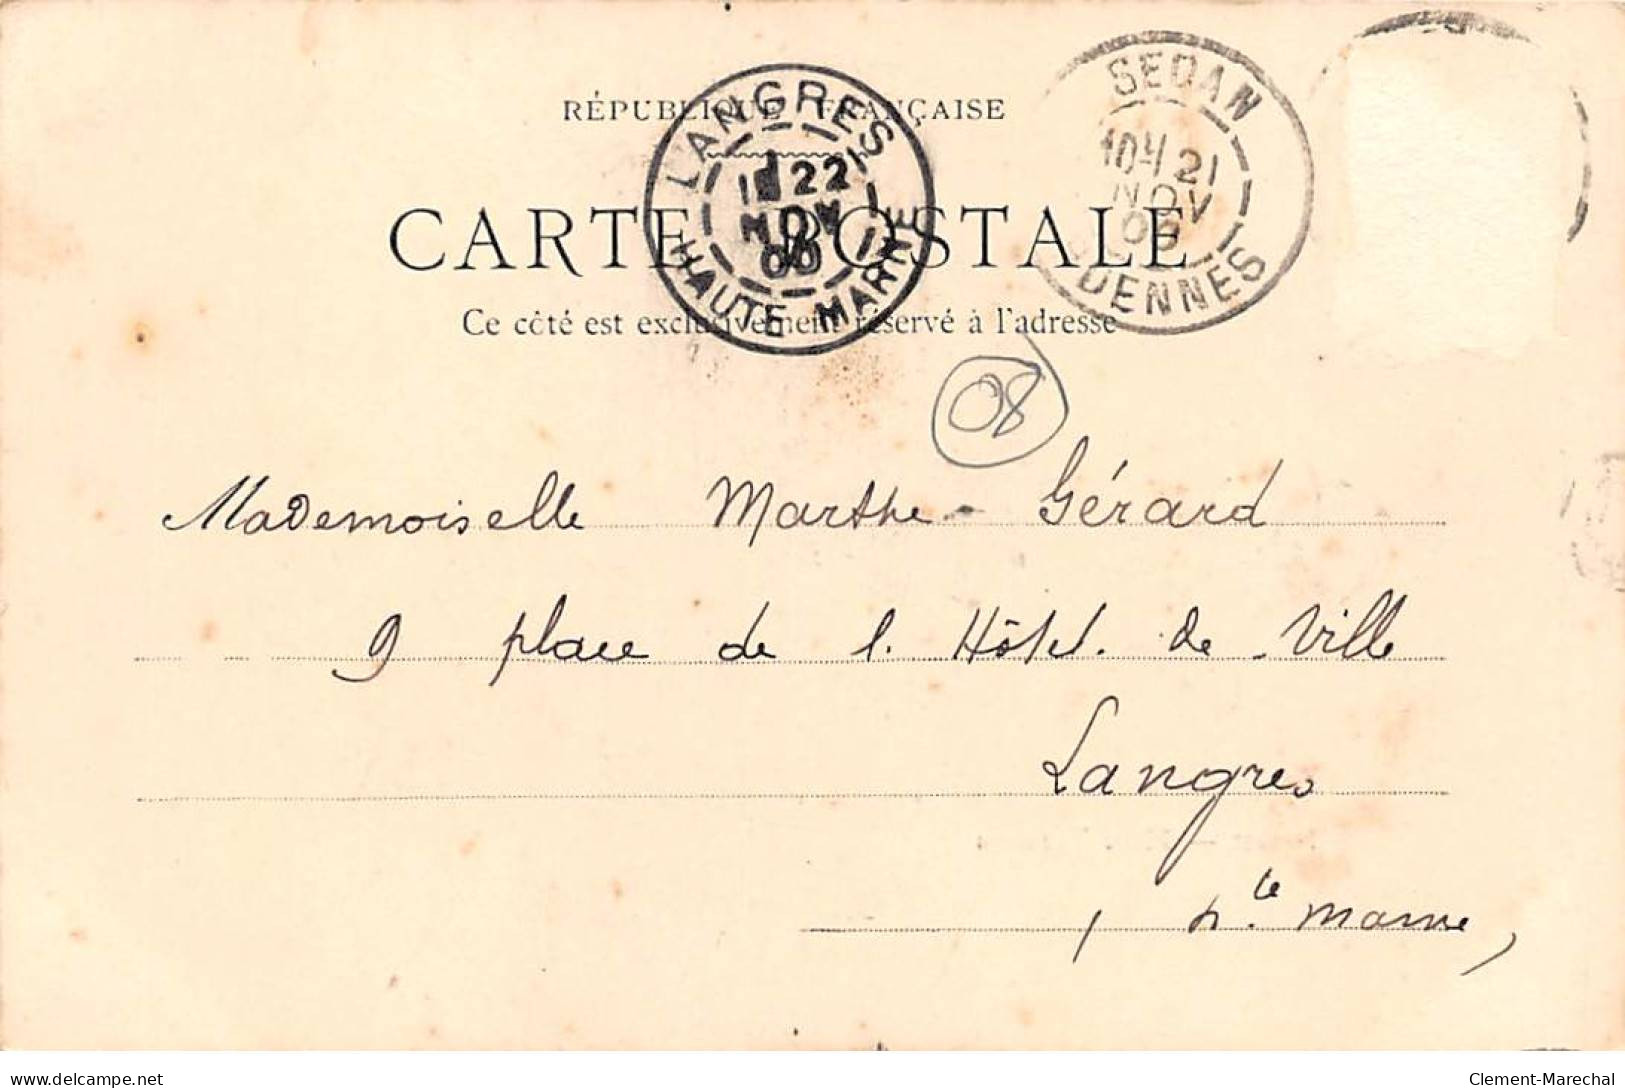 RÉPUBLIQUE FRANÇAISE
LANGRES
22
NOV
00
HAUTE MARNE
SEDAN
21
NOV
DENNES
CARTE POSTALE
Ce côté est exclusivement réservé à l'adresse
08
Mademoiselle Marthe Gérard
9 place de l'Hôtel de Ville
Langres
(Hte Marne)
delcampe.net
Clement-Marechal